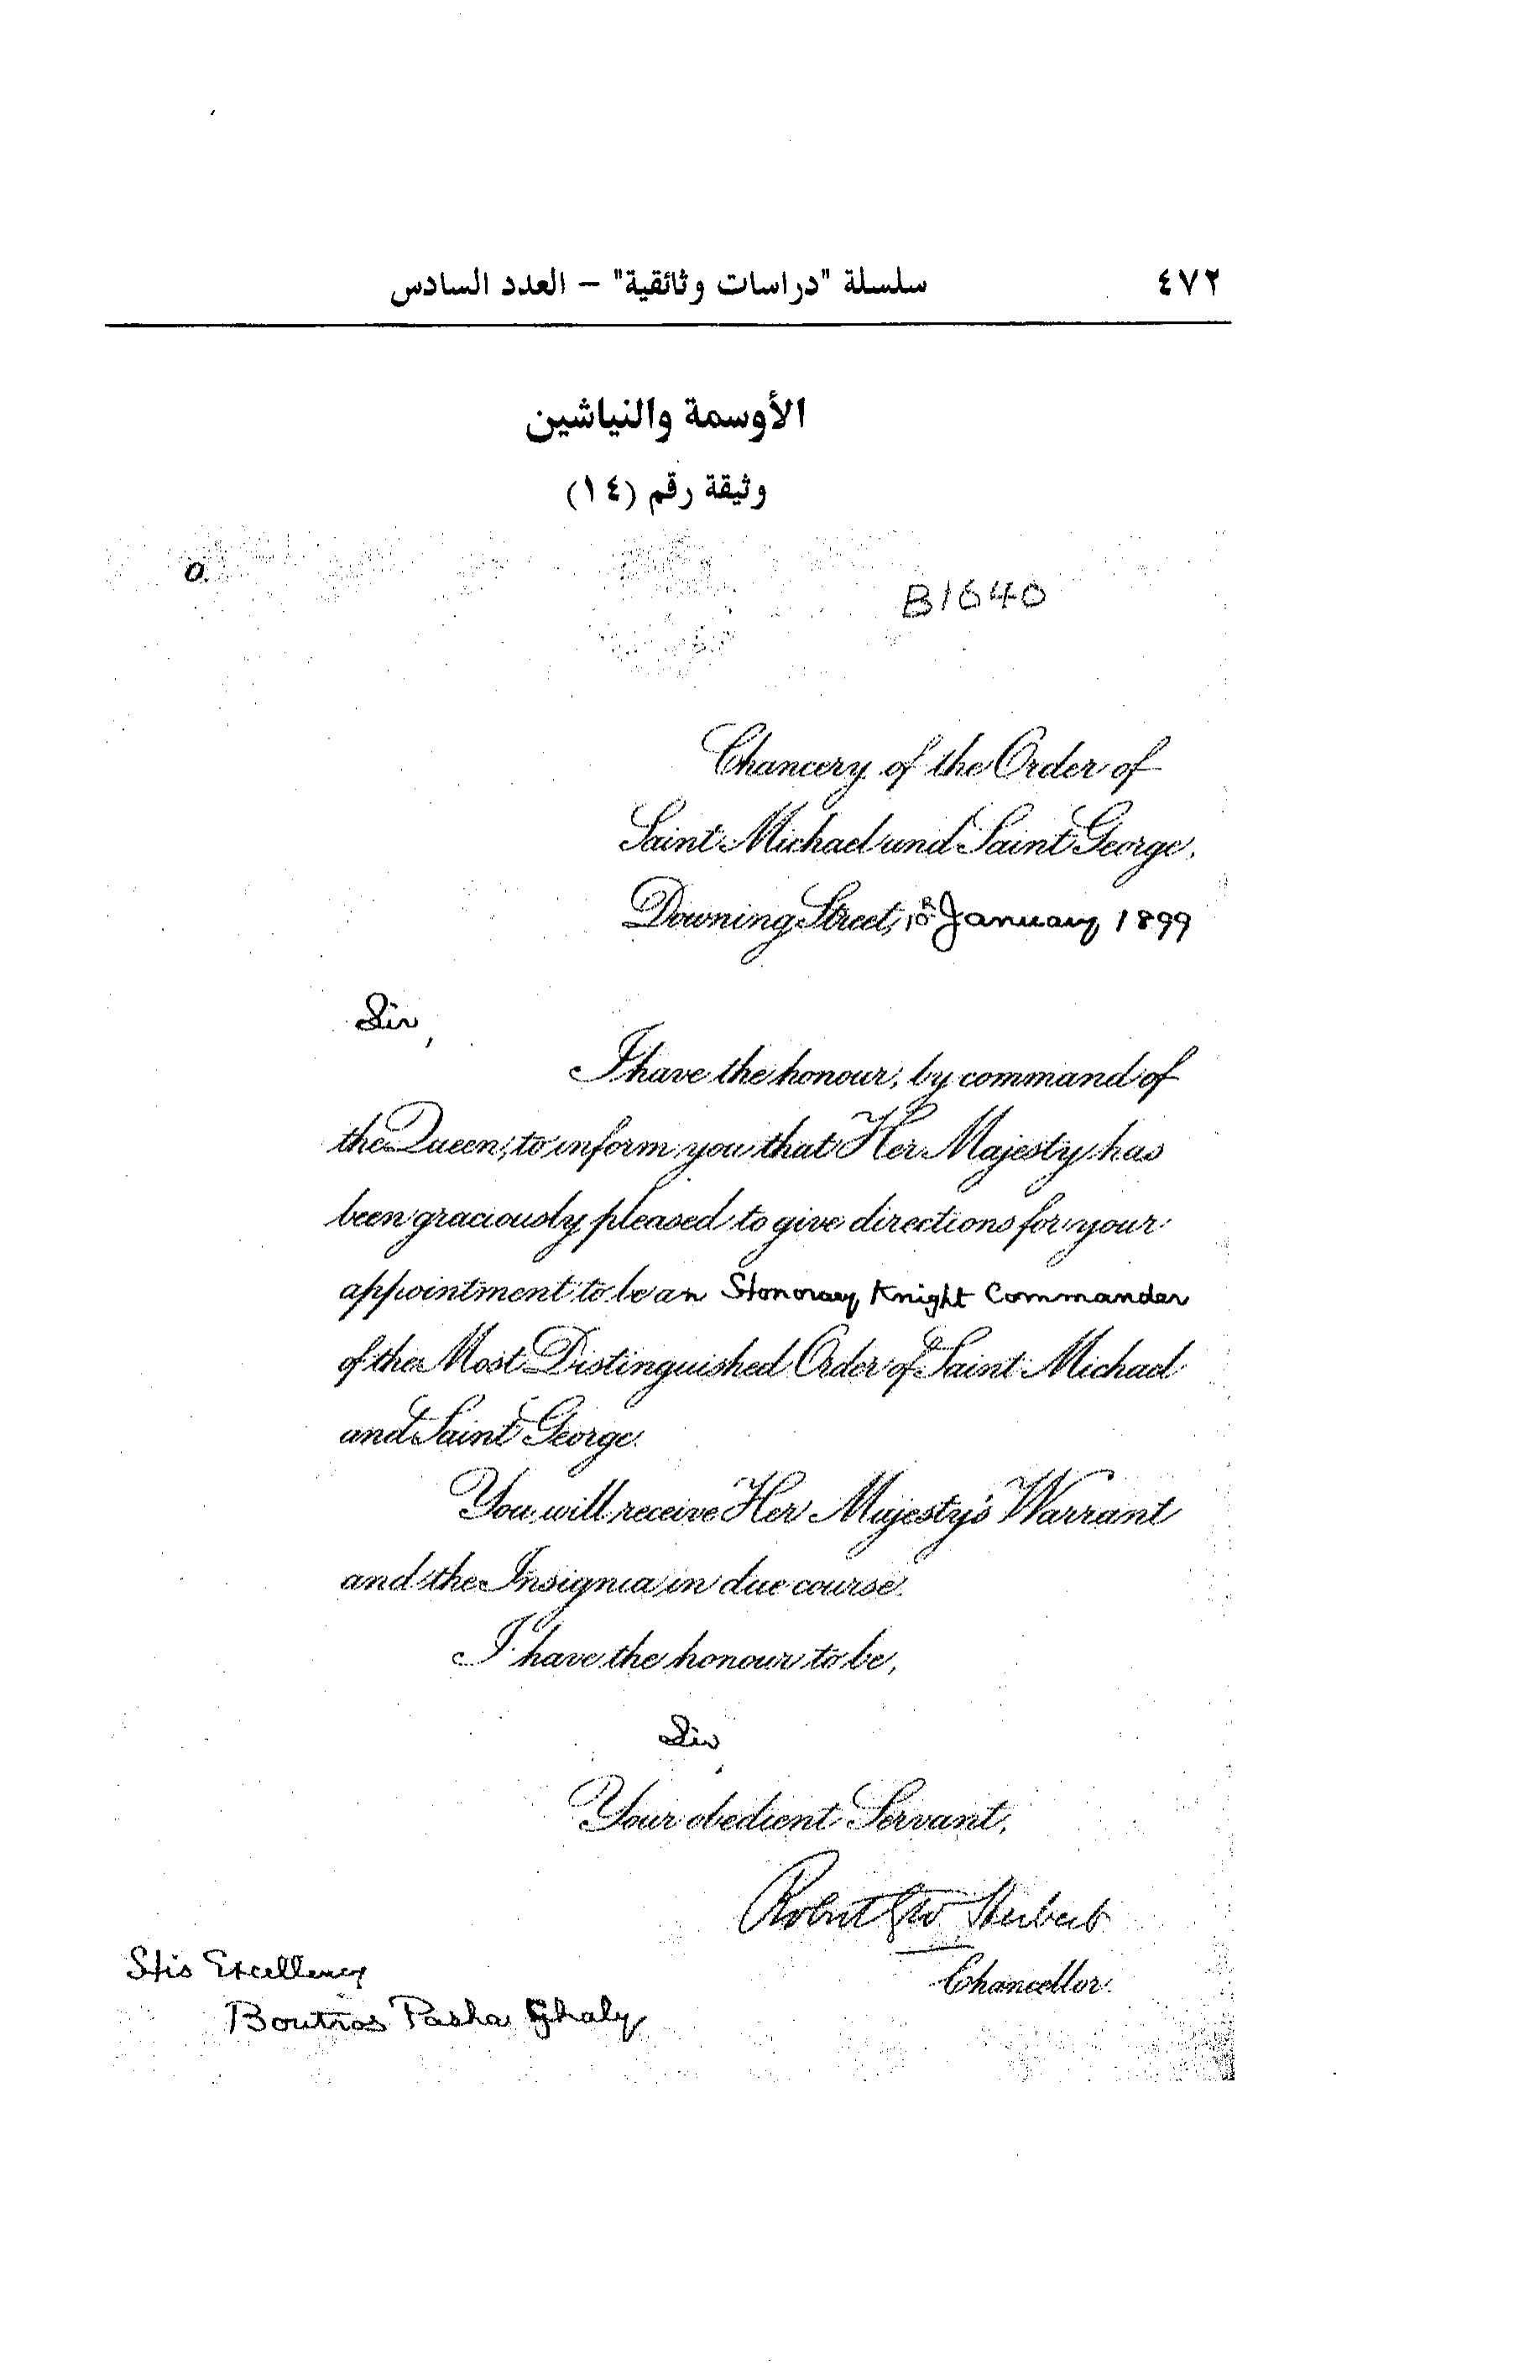 ٤٧٢ سلسلة "دراسات وثائقية" – العدد السادس
الأوسمة والنياشين
وثيقة رقم (١٤)
B1640
Chancery of the Order of
Saint Michael and Saint George,
Downing Street, January 1899
Sir,
I have the honour, by command of
the Queen, to inform you that Her Majesty has
been graciously pleased to give directions for your
appointment to be an Honorary Knight Commander
of the Most Distinguished Order of Saint Michael
and Saint George.
You will receive Her Majesty's Warrant
and the Insignia in due course.
I have the honour to be,
Sir,
Your obedient Servant,
Robert G W Herbert
Chancellor.
His Excellency
Boutros Pasha Ghaly